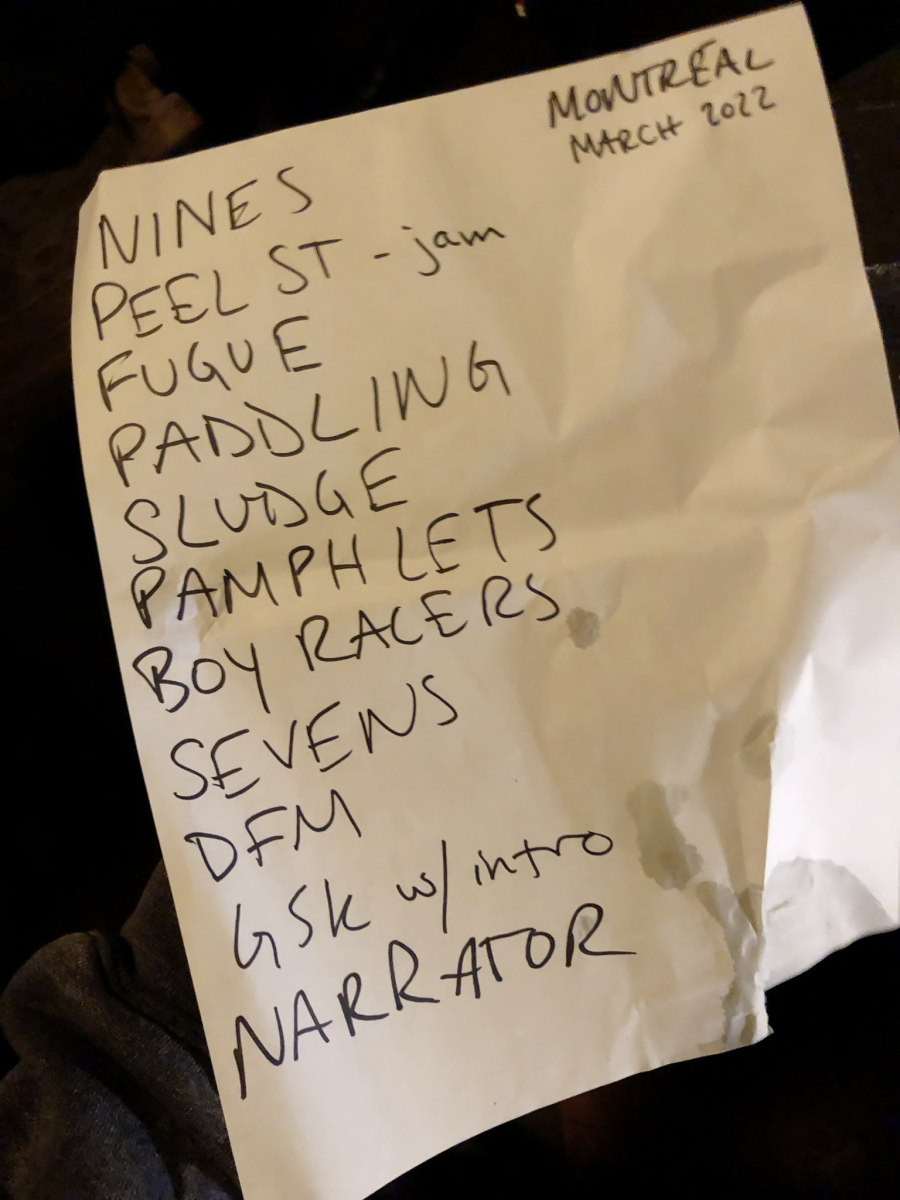 MONTRÉAL
MARCH 2022
NINES
PEEL ST - jam
FUGUE
PADDLING
SLUDGE
PAMPHLETS
BOY RACERS
SEVENS
DFM
GSK w/ intro
NARRATOR